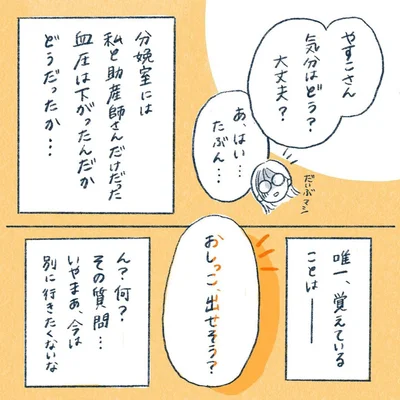 やすこさん
気分はどう？
大丈夫？
あ、はい…
たぶん…
だいぶマシ
分娩室には
私と助産師さんだけだった
血圧は下がったんだか
どうだったか…
唯一、覚えている
ことは――
おしっこ、出せそう？
ん？何？
その質問…
いやまぁ、今は
別に行きたくないな